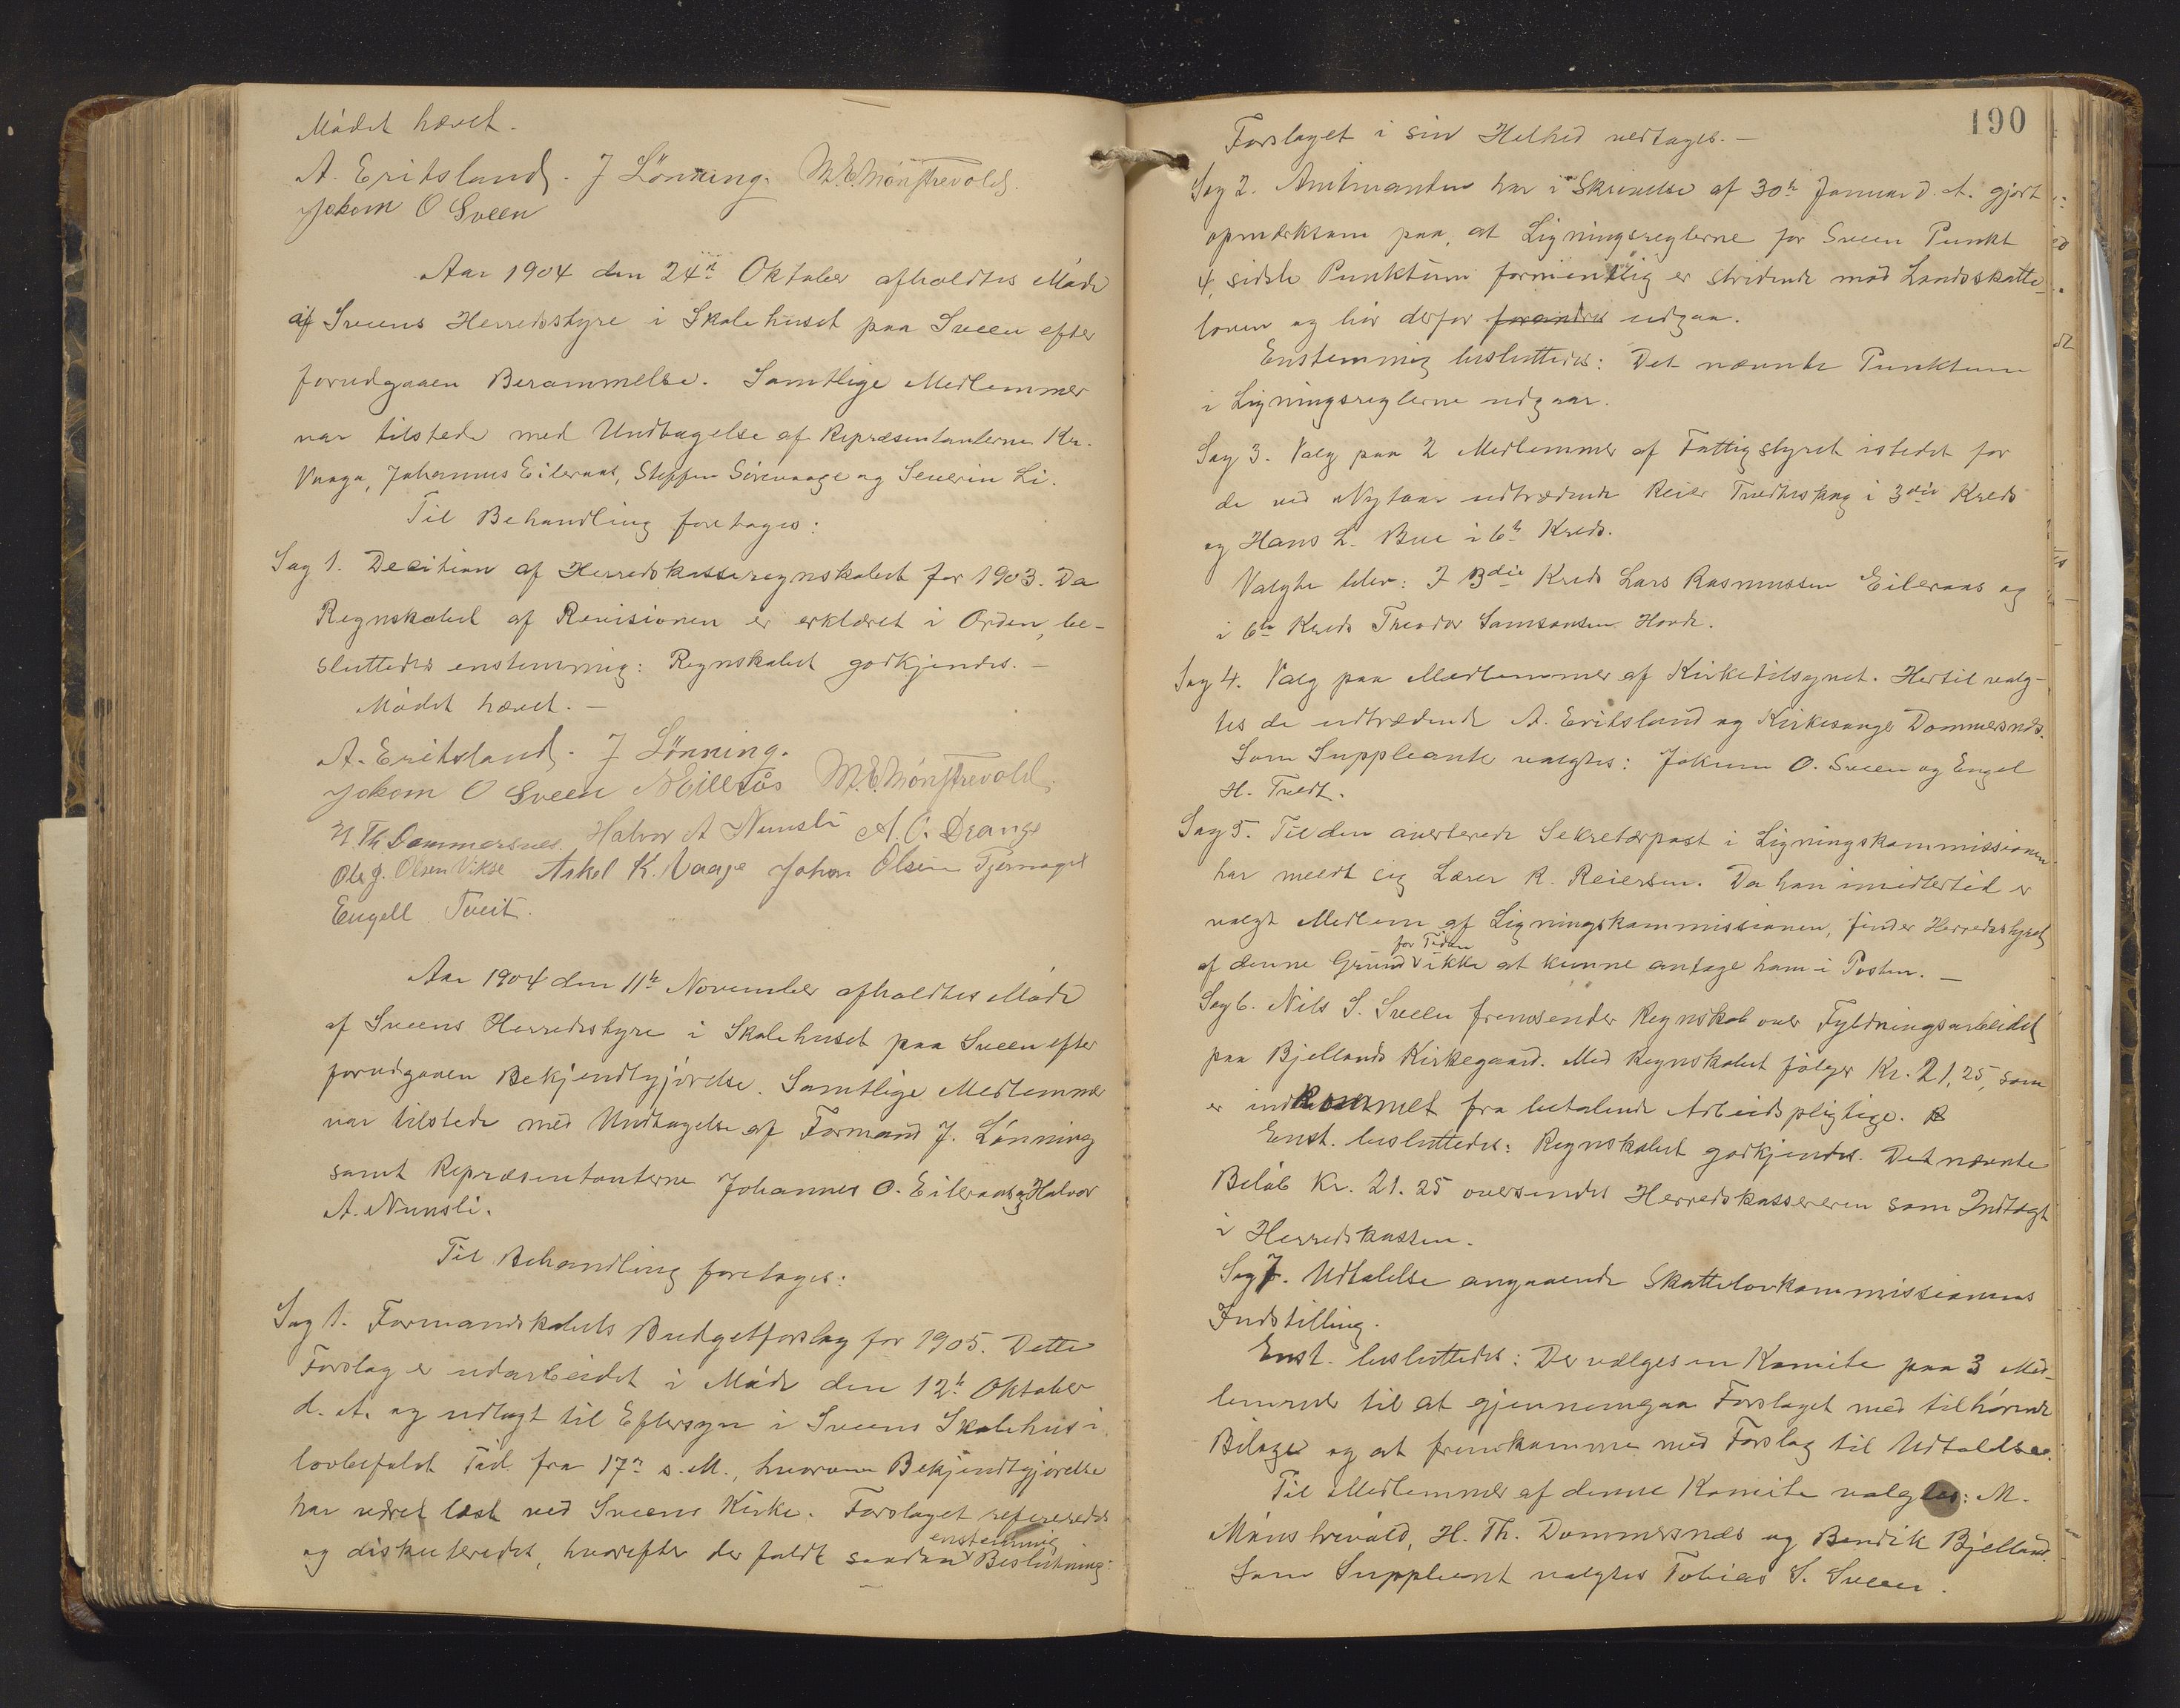 Mødet hævet.
A. Eritsland. J Lönning. M. E. Mönstrevold.
Jokom O Sveen
Aar 1904 den 24de Oktober afholdtes Møde
af Sveens Herredsstyre i Skolehuset paa Sveen efter
forudgaaen Berammelse. Samtlige Medlemmer
var tilstede med Undtagelse af Repræsentanterne Kr.
Vaage, Johannes Eileraas, Steffen Sørvaage og Severin Li.
Til Behandling foretoges:
Sag 1. Decition af Herredskasseregnskabet for 1903. Da
Regnskabet af Revisionen er erklæret i Orden, be-
sluttedes enstemmig: Regnskabet godkjendes. -
Mødet hævet. -
A. Eritsland. J Lönning.
Jokom O Sveen N Eilerås M. E. Mönstrevold.
H. Th. Dommersnes. Halvor A Nunsli A. O. Drange
Ole J. Olsen Vikse Askel K. Vaage Johan Olsen Tjernagel
Engell Tveit.
Aar 1904 den 11te November afholdtes Møde
af Sveens Herredsstyre i Skolehuset paa Sveen efter
forudgaaen Bekjendtgjørelse. Samtlige Medlemmer
var tilstede med Undtagelse af Formand J. Lønning
samt Repræsentanterne Johannes O. Eileraas og Halvor
A. Nunsli.
Til Behandling foretoges:
Sag 1. Formandskabets Budgetforslag for 1905. Dette
Forslag er udarbeidet i Møde den 12te Oktober
d. A. og udlagt til Eftersyn i Sveens Skolehus i
lovbefalet Tid fra 17de s. M., hvorom Bekjendtgjørelse
har været læst ved Sveens Kirke. Forslaget refereredes
og diskuteredes, hvorefter der faldt saadan enstemmig Beslutning:
190
Forslaget i sin Helhed vedtages. -
Sag 2. Amtmanden har i Skrivelse af 30te Januar d. A. gjort
opmærksom paa, at Ligningsreglerne for Sveen Punkt
4, sidste Punktum formentlig er stridende mod Landsskatte-
loven og bør derfor forandres udgaa.
Enstemmig besluttedes: Det nævnte Punktum
i Ligningsreglerne udgaar.
Sag 3. Valg paa 2 Medlemmer af Fattigstyret istedet for
de ved Nytaar udtrædende Reier Tvedteskog i 3die Kreds
og Hans L. Bue i 6te Kreds.
Valgte blev: I 3die Kreds Lars Rasmussen Eileraas og
i 6te Kreds Theodor Samsonsen Hovde.
Sag 4. Valg paa Medlemmer af Kirketilsynet. Hertil valg-
tes de udtrædende A. Eritsland og Kirkesanger Dommersnes.
Som Suppleanter valgtes: Jokum O. Sveen og Engel
H. Tvedt.
Sag 5. Til den averterede Sekretærpost i Ligningskommissionen
har meldt sig Lærer R. Reiersen. Da han imidlertid er
valgt Medlem af Ligningskommissionen, finder Herredsstyret
af denne Grund for Tiden ikke at kunne antage ham i Posten. -
Sag 6. Nils S. Sveen fremsender Regnskab over Fyldningsarbeidet
paa Bjellands Kirkegaard. Med Regnskabet følger Kr. 21,25, som
er indkommet fra betalende Arbeidspligtige.
Enst. besluttedes: Regnskabet godkjendes. Det nævnte
Beløb Kr. 21.25 oversendes Herredskassereren som Indtægt
i Herredskassen.
Sag 7. Udtalelse angaaende Skattelovkommissionens
Indstilling.
Enst. besluttedes: Der vælges en Komite paa 3 Med-
lemmer til at gjennemgaa Forslaget med tilhørende
Bilage og at fremkomme med Forslag til Udtalelse.
Til Medlemmer af denne Komite valgtes: M.
Mønstrevold, H. Th. Dommersnes og Bendik Bjelland.
Som Suppleant valgtes Tobias S. Sveen.